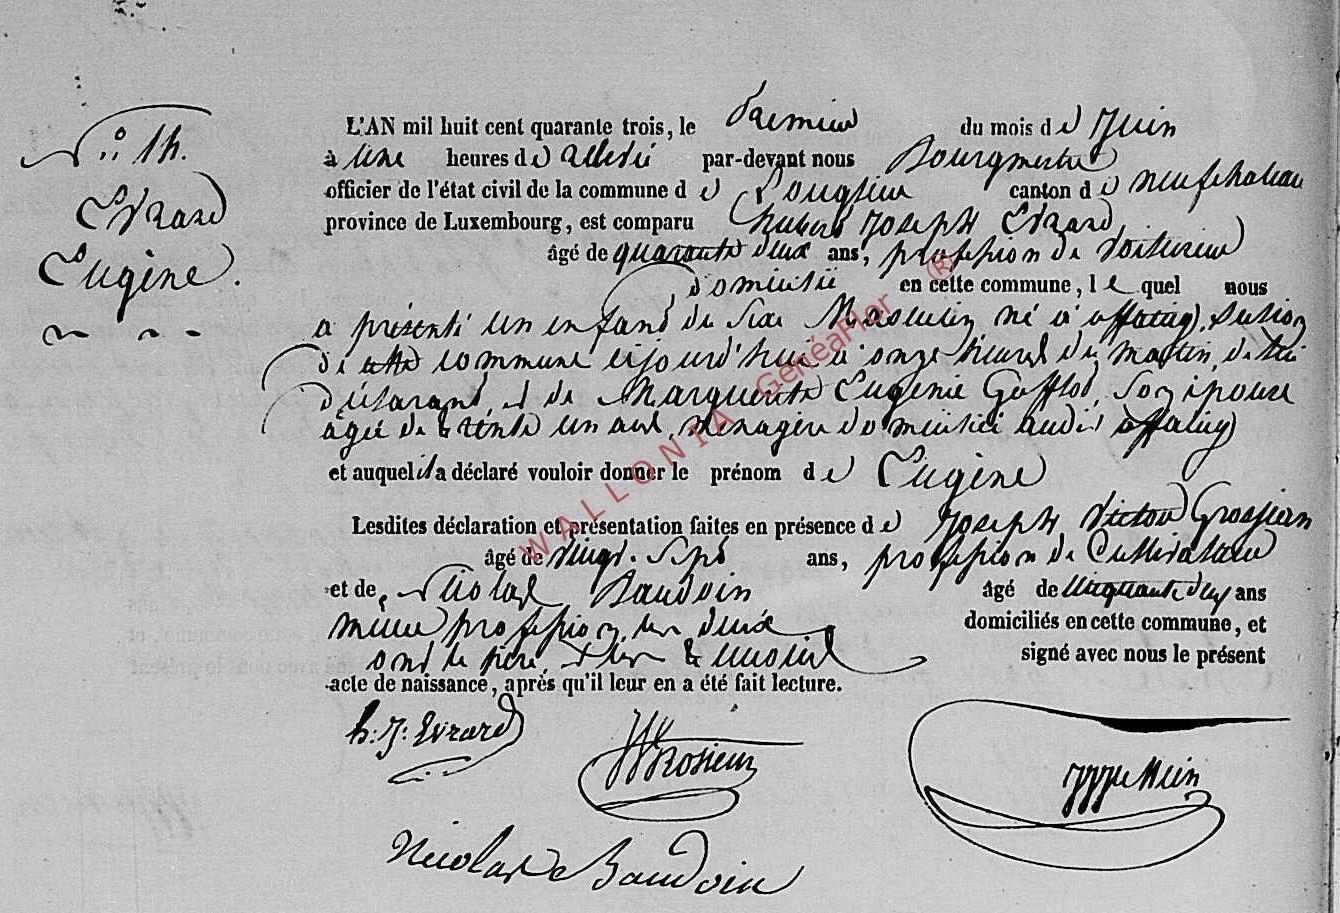 N° 14.
Evrard
Eugène.
L'AN mil huit cent quarante trois, le premier du mois de Juin
à une heures de relevée par-devant nous Bourgmestre
officier de l'état civil de la commune de Longlier canton de neufchateau
province de Luxembourg, est comparu hubert Joseph Evrard,
âgé de quarante deux ans, profession de voiturier
domicilié en cette commune, lequel nous
a présenté un enfant du sexe Masculin né à offaing, section
de cette commune cejourd'hui à onze heures du matin, de lui
déclarant, et de Marguerite Eugenie Gofflot, son épouse
agée de trente un ans, ménagère domiciliée audit offaing
et auquel il a déclaré vouloir donner le prénom de Eugène
Lesdites déclaration et présentation faites en présence de Joseph Victor
âgé de vingt-sept ans, profession de Cultivateur
et de Nicolas Baudoin âgé de cinquante deux ans
même profession, tous deux domiciliés en cette commune, et
ont le père, et les témoins signé avec nous le présent
acte de naissance, après qu'il leur en a été fait lecture.
h. J. Evrard
Nicolas Baudoin
WALLONIA GénéaFlor ®